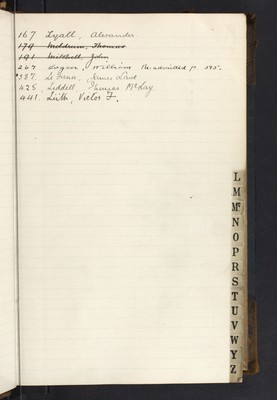 167 Lyall, Alexander
179 Meldrum, Thomas
191 Mitchell, John
267 William. Re-admitted p. 395.
387. Le James
425 Liddell Thomas McLay
441. Leith Victor F.
L
M
Mc
N
O
P
R
S
T
U
V
W
Y
Z